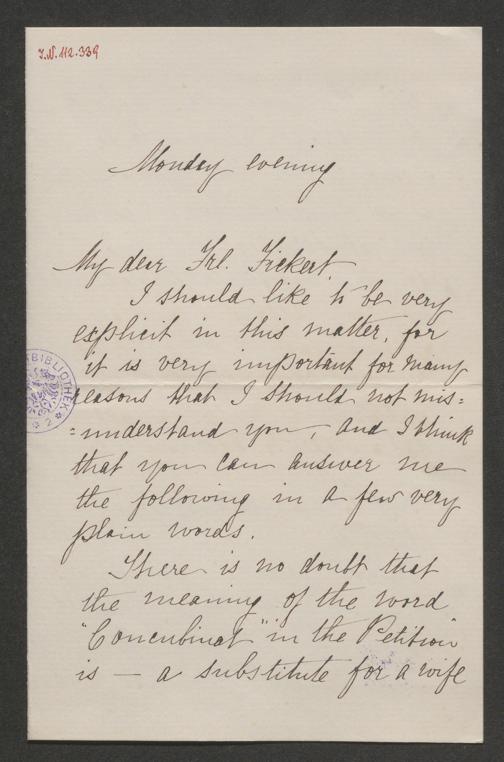 I.N. 112.339
Monday evening
My dear Frl. Fickert
I should like to be very
explicit in this matter, for
it is very important for many
reasons that I should not mis=
=understand you, and I think
that you can answer me
the following in a few very
plain words.
There is no doubt that
the meaning of the word
"Concubinat" in the Petition
is — a substitute for a wife
BIBLIOTHEK